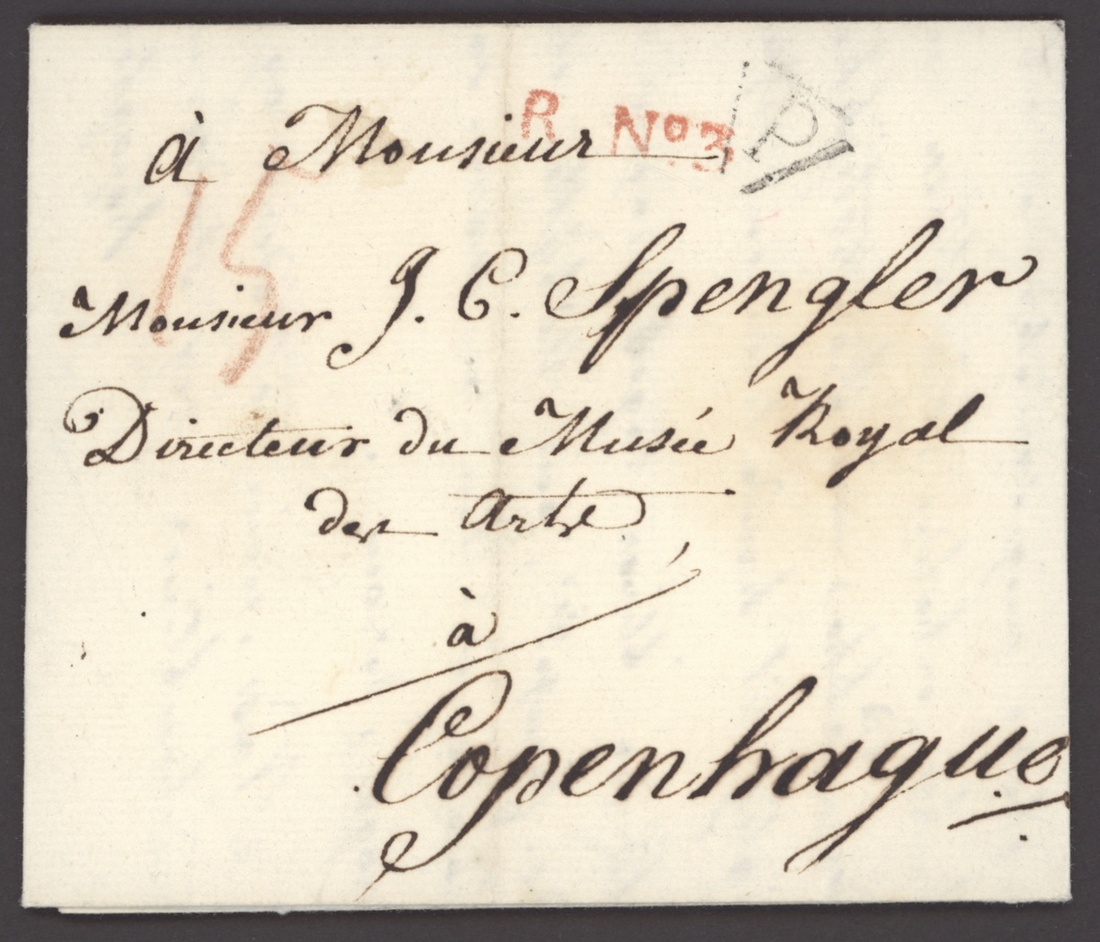 R No 3 P
à Monsieur
15
Monsieur J. C. Spengler
Directeur du Musée Royal
des Arts
à
Copenhague